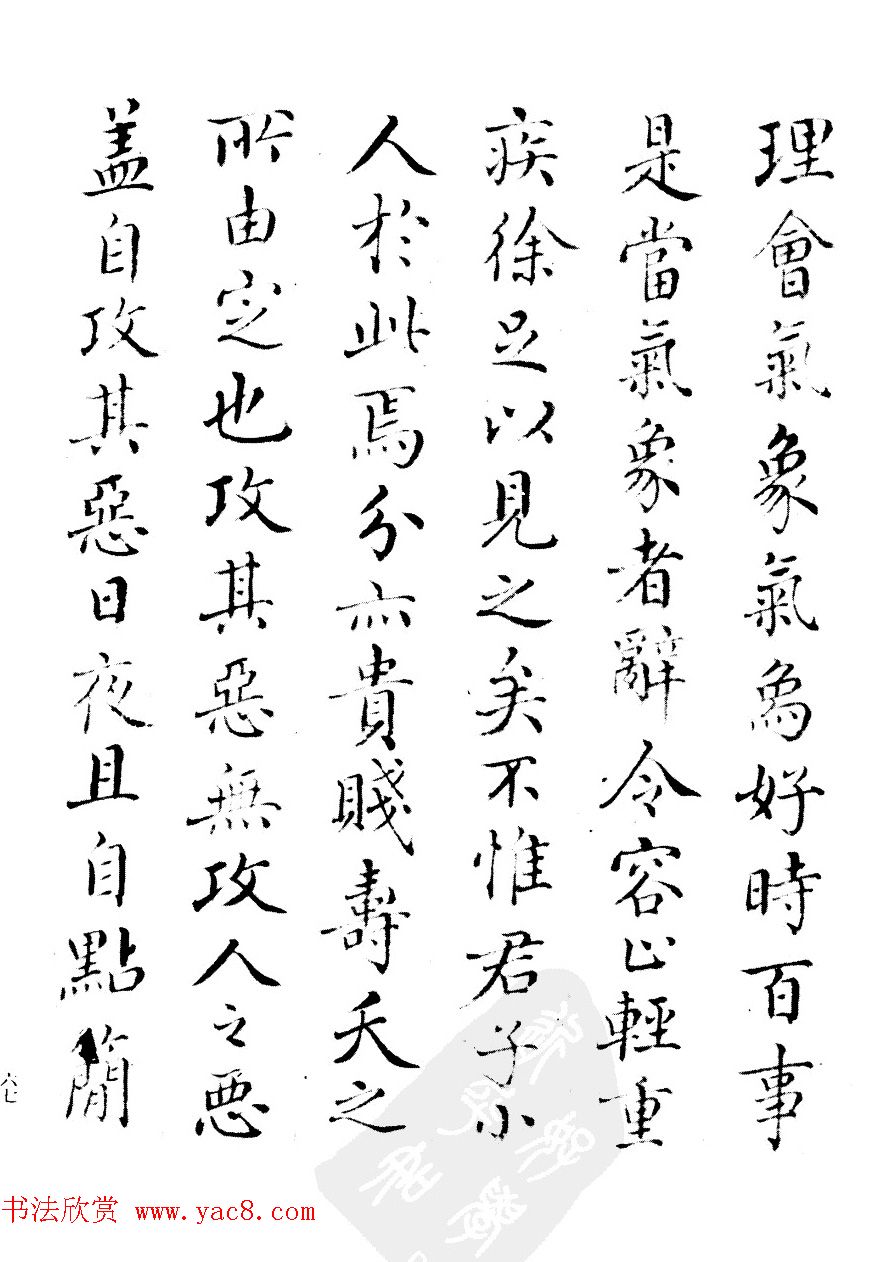 理會氣象氣象好時百事
是當氣象者辭令容止輕重
疾徐足以見之矣不惟君子小
人於此焉分亦貴賤壽夭之
所由定也攻其惡無攻人之惡
蓋自攻其惡日夜且自點簡
六七
书法欣赏 www.yac8.com